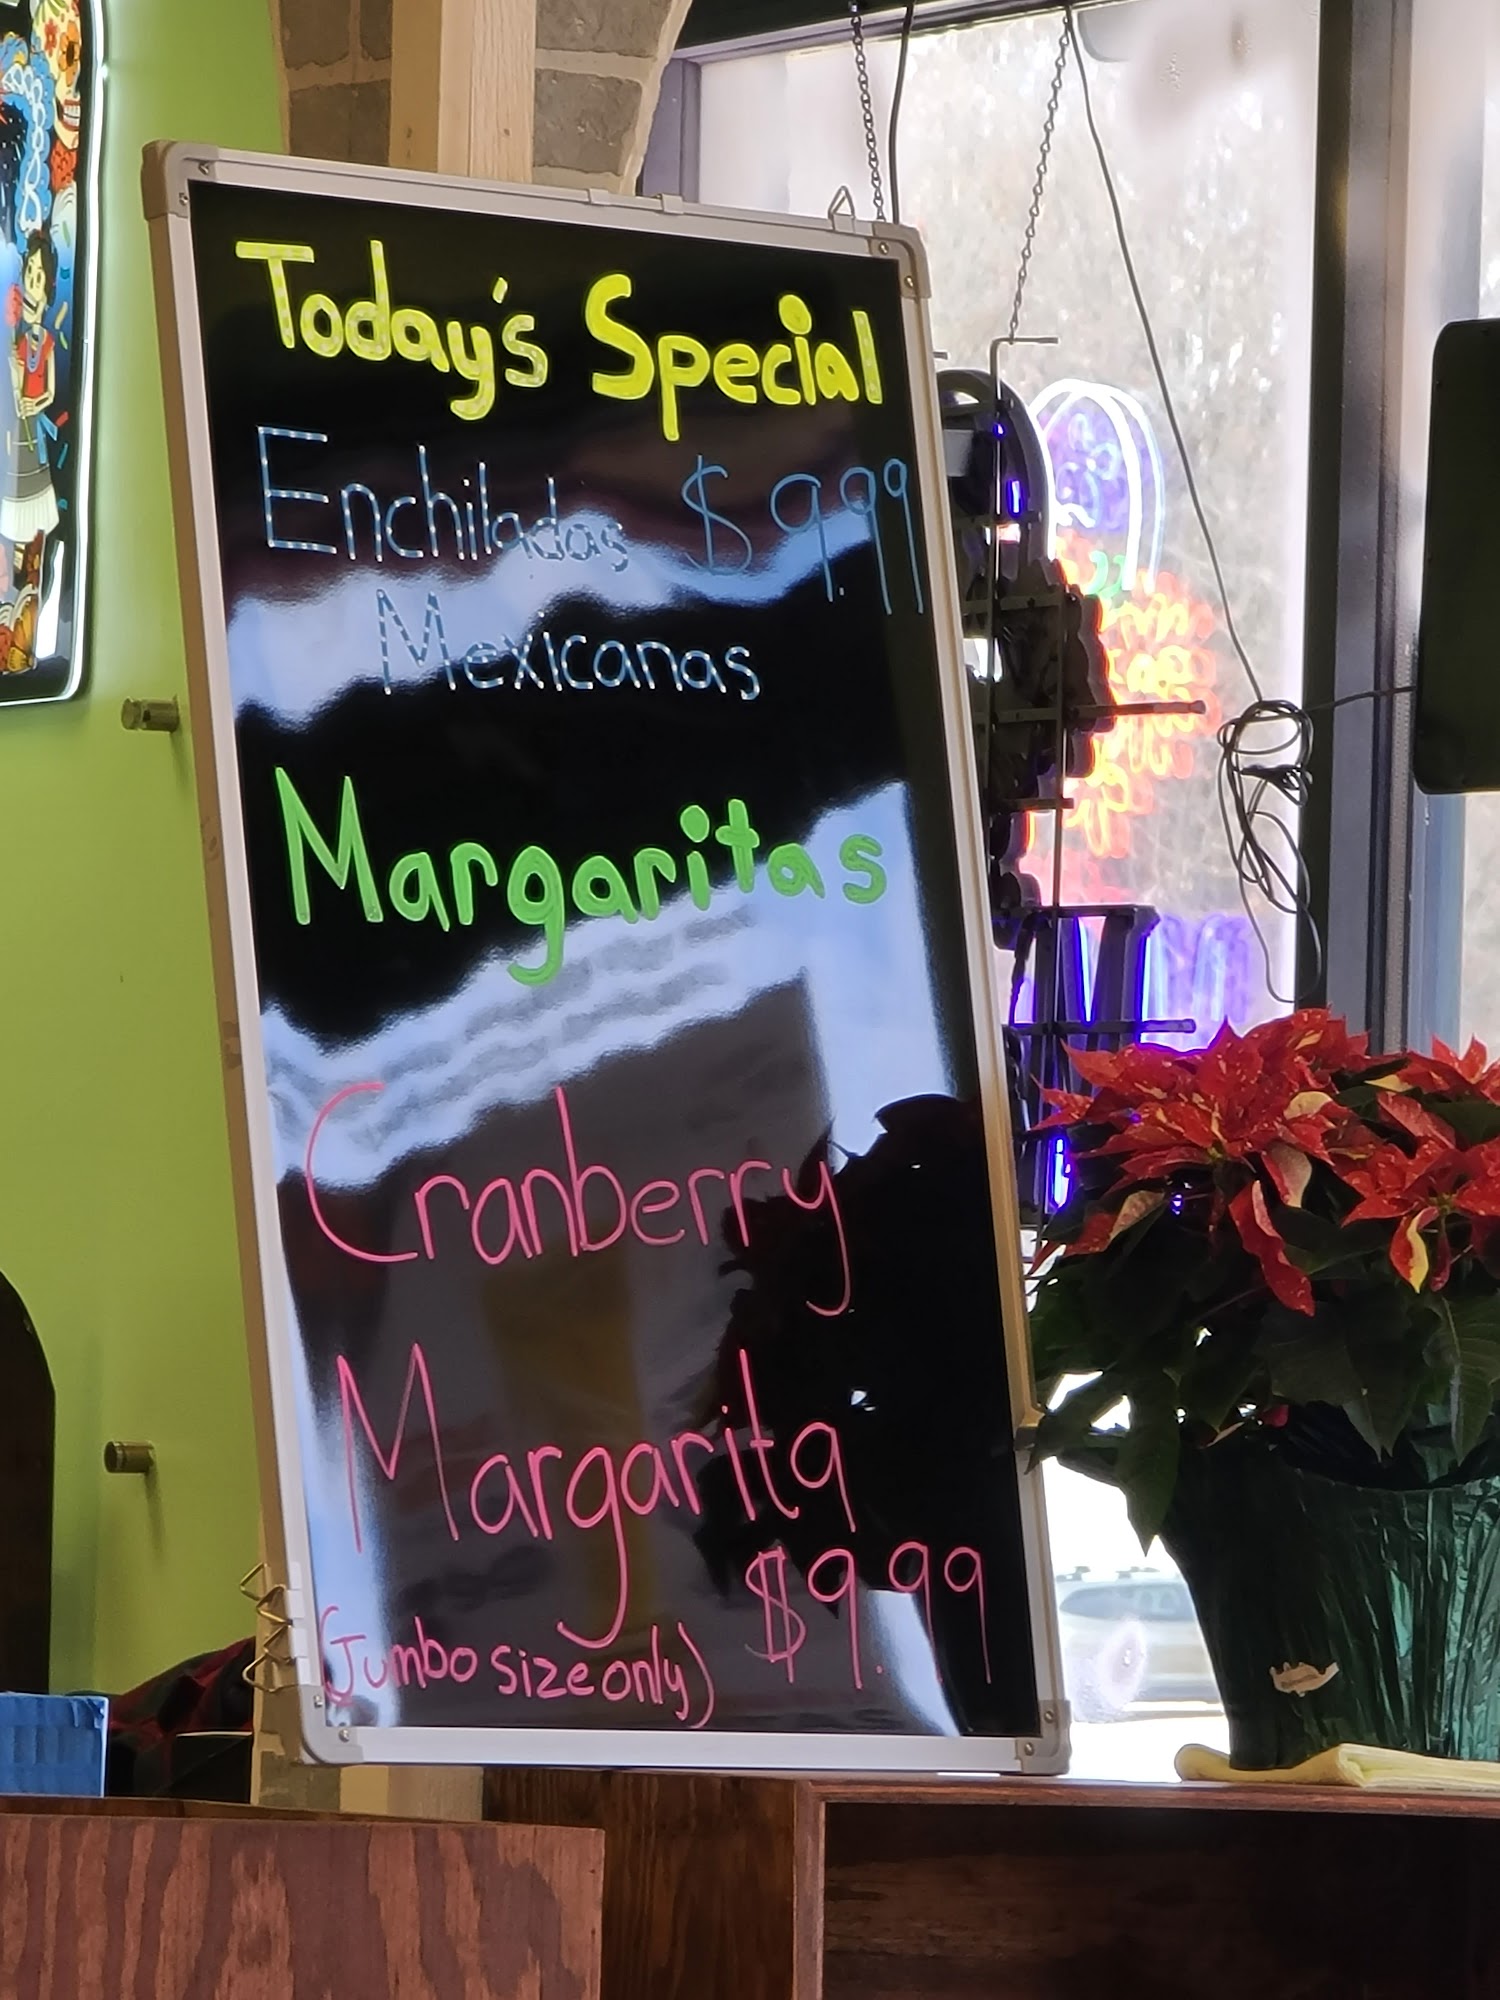 Today's Special
Enchiladas $9.99
Mexicanas
Margaritas
Cranberry
Margarita
$9.99
(Jumbo size only)